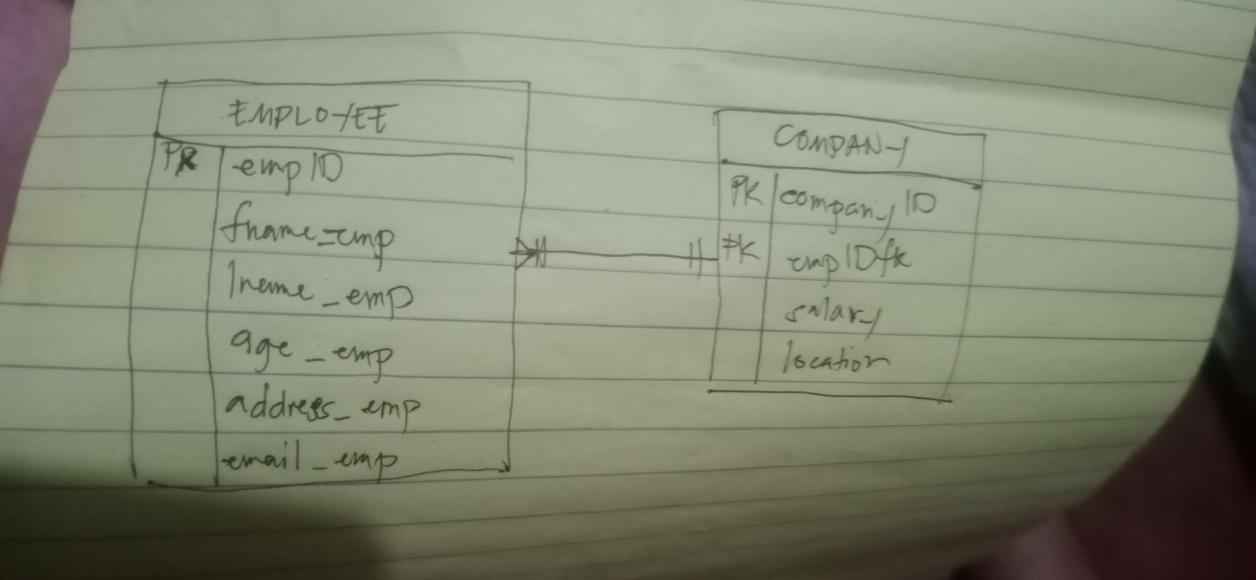 EMPLOYEE
PK empID
fname_emp
lname_emp
age_emp
address_emp
email_emp
COMPANY
PK companyID
FK empIDfk
salary
location